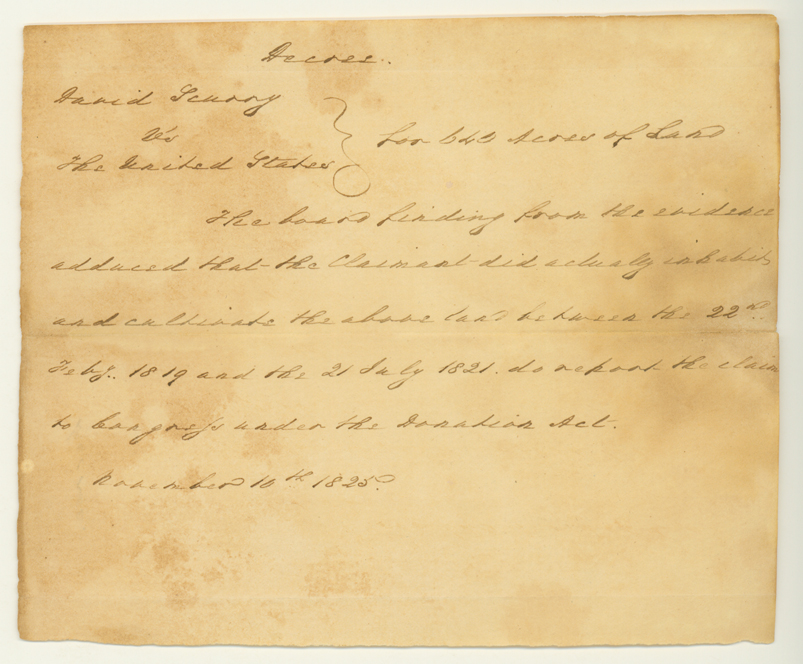 Decree.
David Scurry
Vs
The United States
for 640 Acres of Land
The board finding from the evidence
adduced that the Claimant did actualy inhabit
and cultivate the above land between the 22nd
Feby. 1819 and the 21 July 1821. do report the claim
to Congress under the Donation Act.
November 10th 1825.